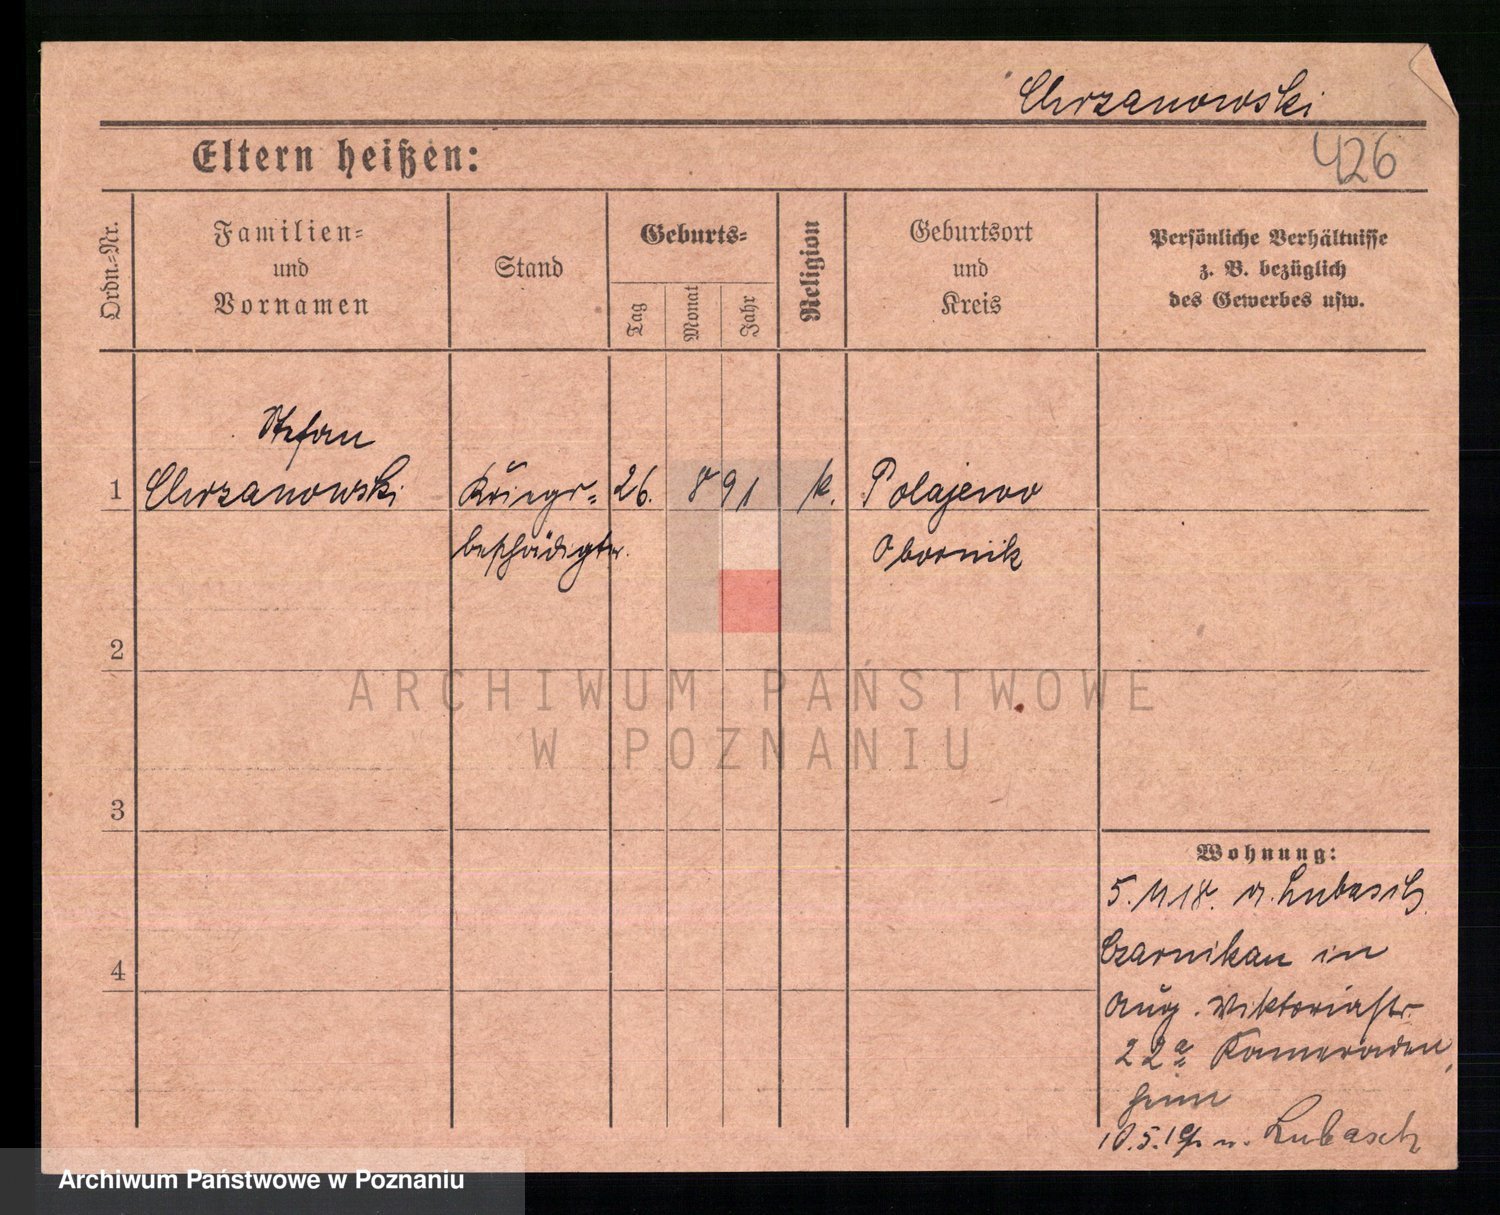 Chrzanowski
Eltern heißen:
426
Ordn.-Nr.
Familien-
und
Vornamen
Stand
Geburts-
Tag
Monat
Jahr
Religion
Geburtsort
und
Kreis
Persönliche Verhältnisse
z. B. bezüglich
des Gewerbes usw.
Stefan
1 Chrzanowski Kriegs- 26. 8 91 k. Polajewo
beschädigter. Obornik
2
ARCHIWUM PAŃSTWOWE
W POZNANIU
3
Wohnung:
5. 11 18. a. Lubasch
4
Czarnikau in
Aug. Viktoriastr.
22a Kameraden
heim
10.5.19 n. Lubasch
Archiwum Państwowe w Poznaniu